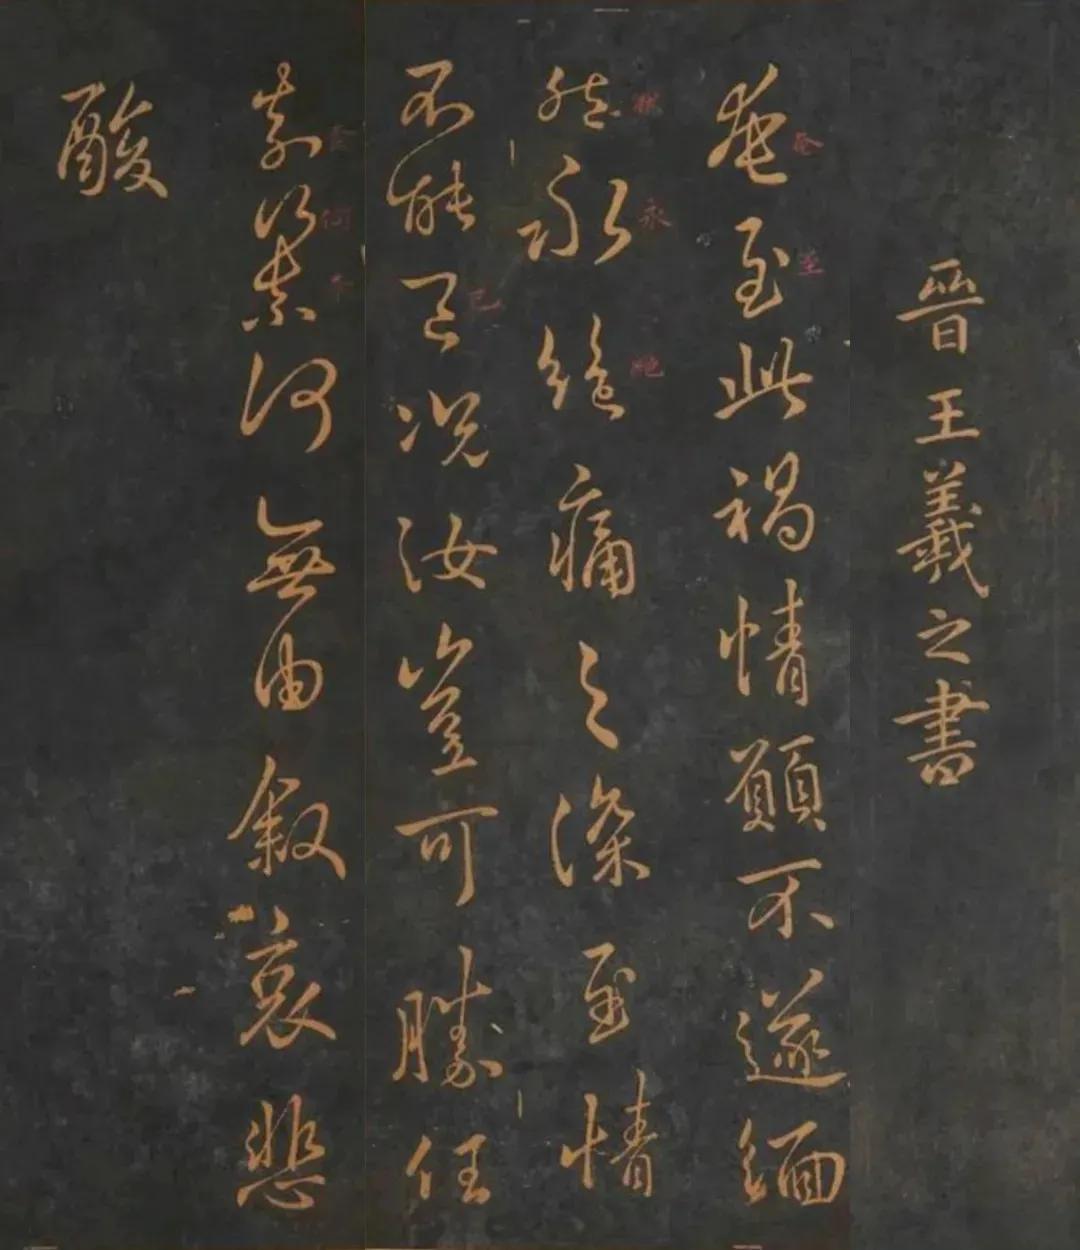 晉王羲之書
奄至此禍情願不遂緬
奄
至
然永絕痛之深至情
永
絕
不能已況汝豈可勝任
已
奈何奈何無由叙哀悲
何
酸